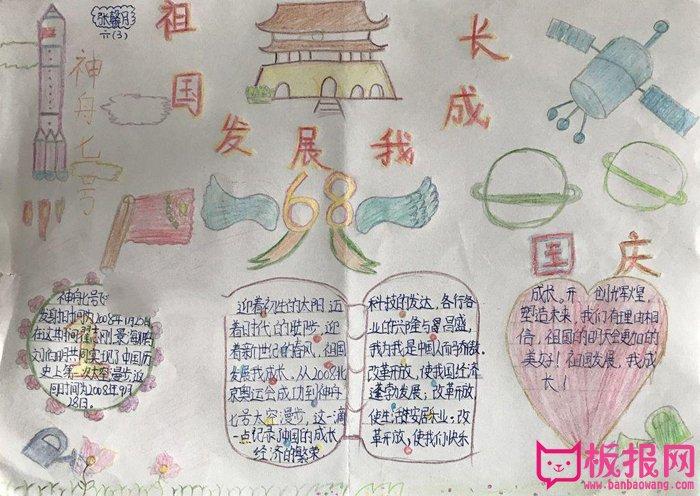 张馨月
六(3)
祖国发展我成长
神舟七号
68
国庆
神舟七号飞
发射时间为2008年9月25日
在这其间翟志刚景海鹏
刘伯明共同实现了中国历
史上第一次太空漫步返
回时间为2008年9月
28日。
迎着初生的太阳,迈
着时代的脚步,迎
着新世纪的春风,祖国
发展我成长。从2008北
京奥运会成功到神舟
七号太空漫步,这一滴
一点记录中国的成长
经济的繁荣
科技的发达,各行各
业的兴隆与昌盛,
我为我是中国人而骄傲。
改革开放,使我国经济
蓬勃发展;改革开放
使生活安居乐业;改
革开放,使我们快乐
成长。开创辉煌,
塑造未来,我们有理由相
信,祖国的明天会更加的
美好!祖国发展,我成
长!
板报网
www.banbaowang.com